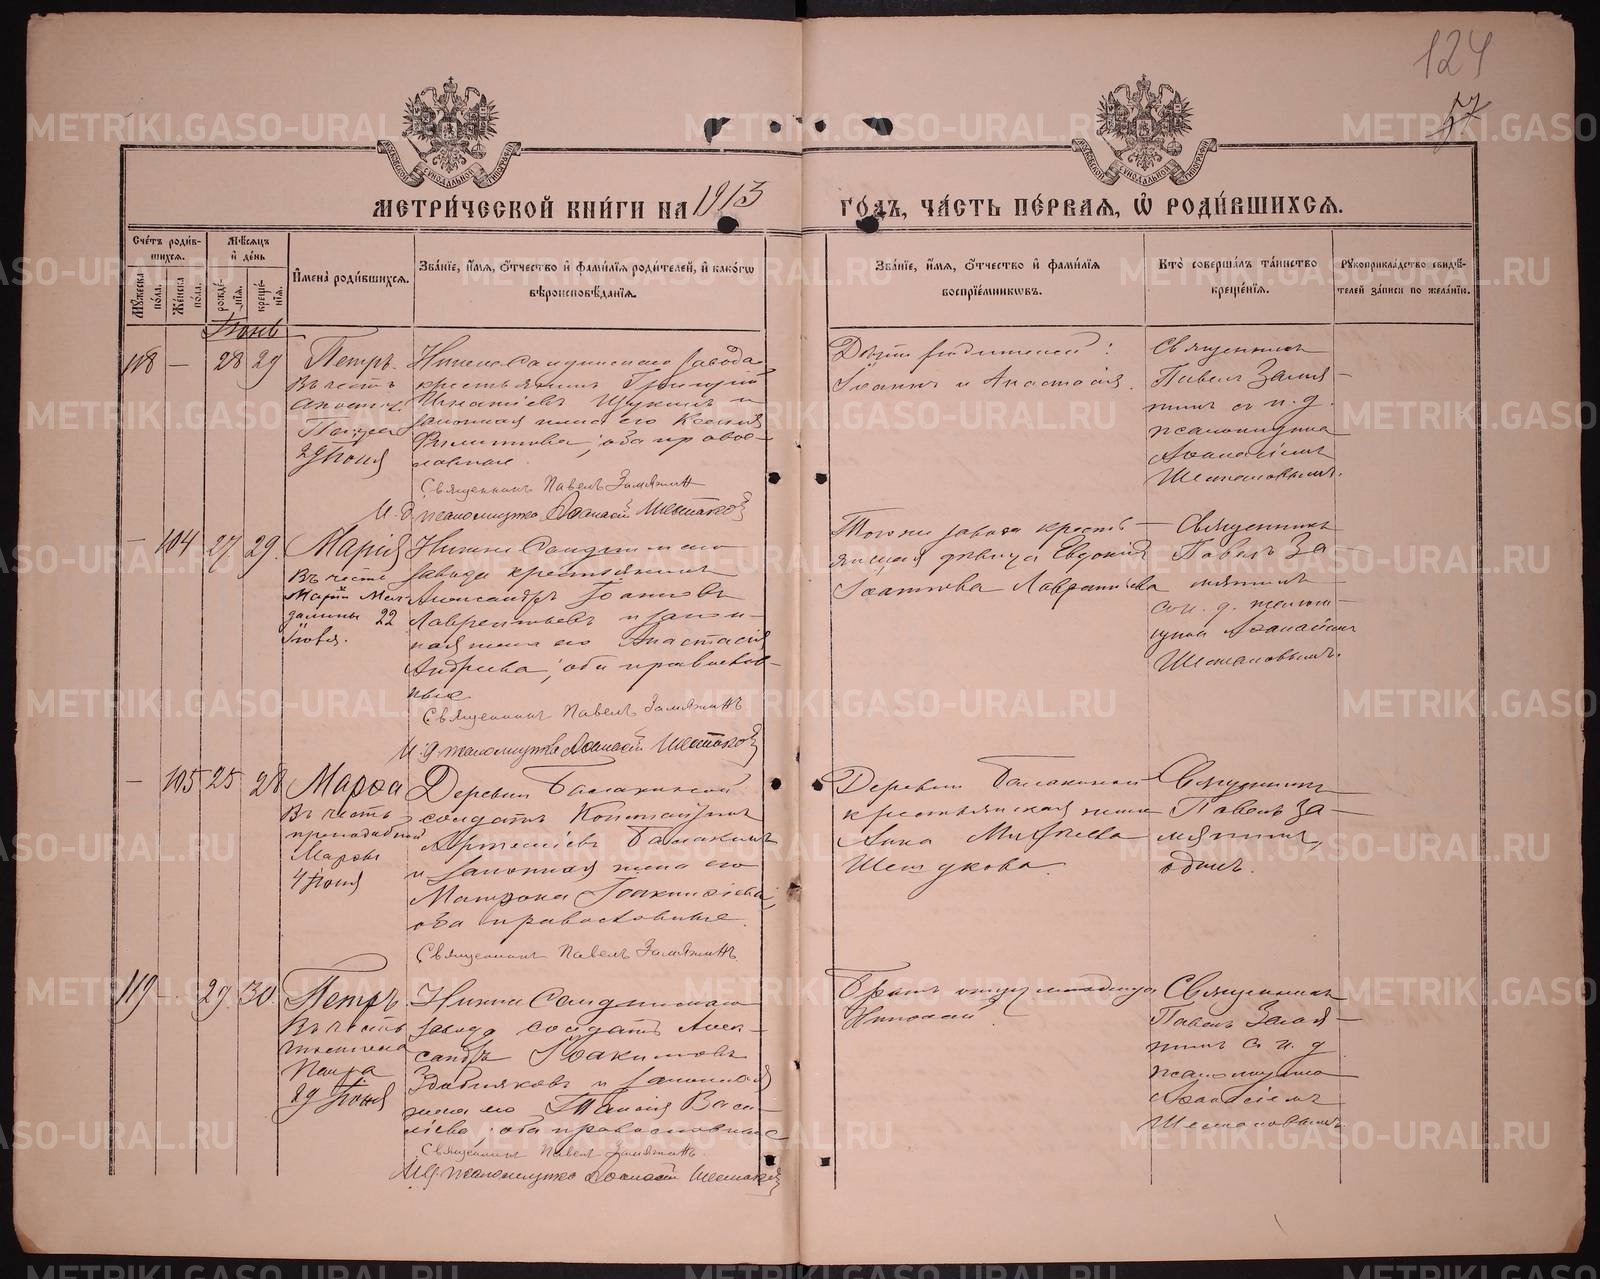 124
57
МЕТРИ́ЧЕСКОЙ КНИ́ГИ НА 1913 ГО́ДЪ, ЧА́СТЬ ПЕ́РВАЯ, Ѿ РОДИ́ВШИХСЯ.
Сче́тъ роди́вшихся.
Му́жеска по́ла.
Же́нска по́ла.
Мѣ́сяцъ и҆ де́нь
рожде́нїѧ.
креще́нїѧ.
И҆мена̀ роди́вшихсѧ.
Зва́нїе, и҆́мѧ, ѻ҆́тчество и҆ фами́лїѧ роди́телей, и҆ како́гѡ
вѣроисповѣ́данїѧ.
Зва́нїе, и҆́мѧ, ѻ҆́тчество и҆ фами́лїѧ
воспрїе́мникѡвъ.
Кто̀ соверша́лъ та́инство
креще́нїѧ.
Рꙋкоприкла́дство свидѣ́-
телей за́писи по жела́нїю.
Іюнь
118 — 28 29
Петръ.
Въ честь
апостол.
29 Іюня
Нижне Салдинскаго завода
крестьянинъ Григорій
Игнатіевъ Щукинъ и
законная жена его Ксенія
Филиппова, оба право-
славные.
Священникъ Павелъ Замятинъ
И. д. псаломщика Аѳанасій Шестаковъ
Дѣти родителей:
Іоаннъ и Анастасія.
Священникъ
Павелъ Замя-
тинъ съ и. д.
псаломщика
Аѳанасіемъ
Шестаковымъ.
— 104 27 29.
Марія
Въ честь
Маріи Маг-
далины 22
Іюля.
Нижне Салдинскаго
завода крестьянинъ
Александръ Іоанновъ
Лаврентьевъ и закон-
ная жена его Анастасія
Андреева, оба православ-
ные
Священникъ Павелъ Замятинъ
И. д. псаломщика Аѳанасій Шестаковъ
Того же завода кресть-
янская дѣвица Евдокія
Іоаннова Лаврентьева
Священникъ
Павелъ За
мятинъ
съ и. д. псалом-
щика Аѳанасіемъ
Шестаковымъ.
— 105 25 28
Марѳа
Въ честь
преподобной
Марѳы
4 Іюня
Деревни Балакиной
солдатъ Константинъ
Артеміевъ Балакинъ
и законная жена его
Матрона Іоакимовна,
оба православные.
Священникъ Павелъ Замятинъ
Деревни Балакиной
крестьянская жена
Анна
Священникъ
Павелъ За-
мятинъ,
одинъ.
119 — 29 30.
Петръ.
Въ честь
29 Іюня
Нижне Салдинскаго
завода солдатъ Алек-
сандръ Іоакимовъ
и законная
жена его Таисія Васи-
ліева, оба православные
Священникъ Павелъ Замятинъ.
И. д. псаломщика Аѳанасій Шестаковъ
Братъ отца младенца
Николай.
Священникъ
Павелъ Замя-
тинъ съ и. д.
псаломщика
Аѳанасіемъ
Шестаковымъ.
METRIKI.GASO-URAL.RU